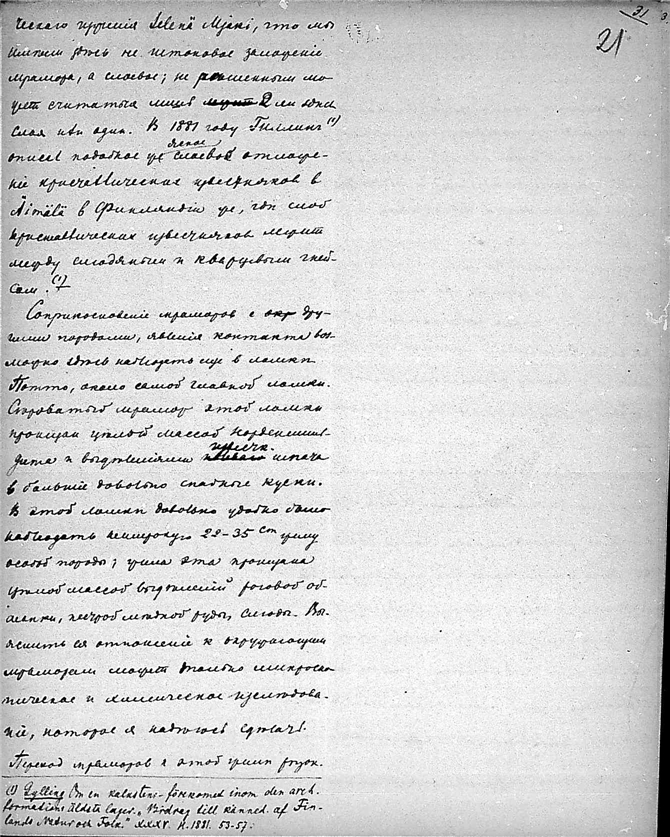 31
21
ческаго кружка Selenä Mjäki, что мы
имѣем здѣсь не штоковое залеганіе
мрамора, а слоевое; не
жет считаться лишь 2 ли
слоя или один. В 1881 году Гиллинг (1)
описал подобное же ясное слоевое отложе-
ніе кристаллических известняков в
Äimälä в Финляндіи же, гдѣ слой
кристаллических известняков лежит
между слюдяным и кварцевым гней-
сом. (1)
Соприкосновеніе мраморов с дру-
гими породами, явленія контакта воз-
можно здѣсь наблюдать еще в ломкѣ
Потто, около самой главной ломки.
Сѣроватый мрамор этой ломки
проницан цѣлой массой норденшиль-
дита и выдѣленіями известк. шпата
в большіе довольно спайные куски.
В этой ломкѣ довольно удобно было
наблюдать неширокую 22-35 cm жилу
особой породы; жила эта проницана
цѣлой массой выдѣленій роговой об-
манки, пестрой мѣдной руды, слюды. Вы-
яснить ея отношеніе к окружающим
мраморам может только микроско-
пическое и химическое изслѣдова-
ніе, которое я надѣюсь сдѣлать.
Переход мраморов к этой жилѣ рѣзок.
(1) Gylling Om en kalkstens-förekomst inom den ark.
formations äldste lager. „Bidrag till känned. af Fin-
lands Natur och Folk." XXXV. H. 1881. 53-57.